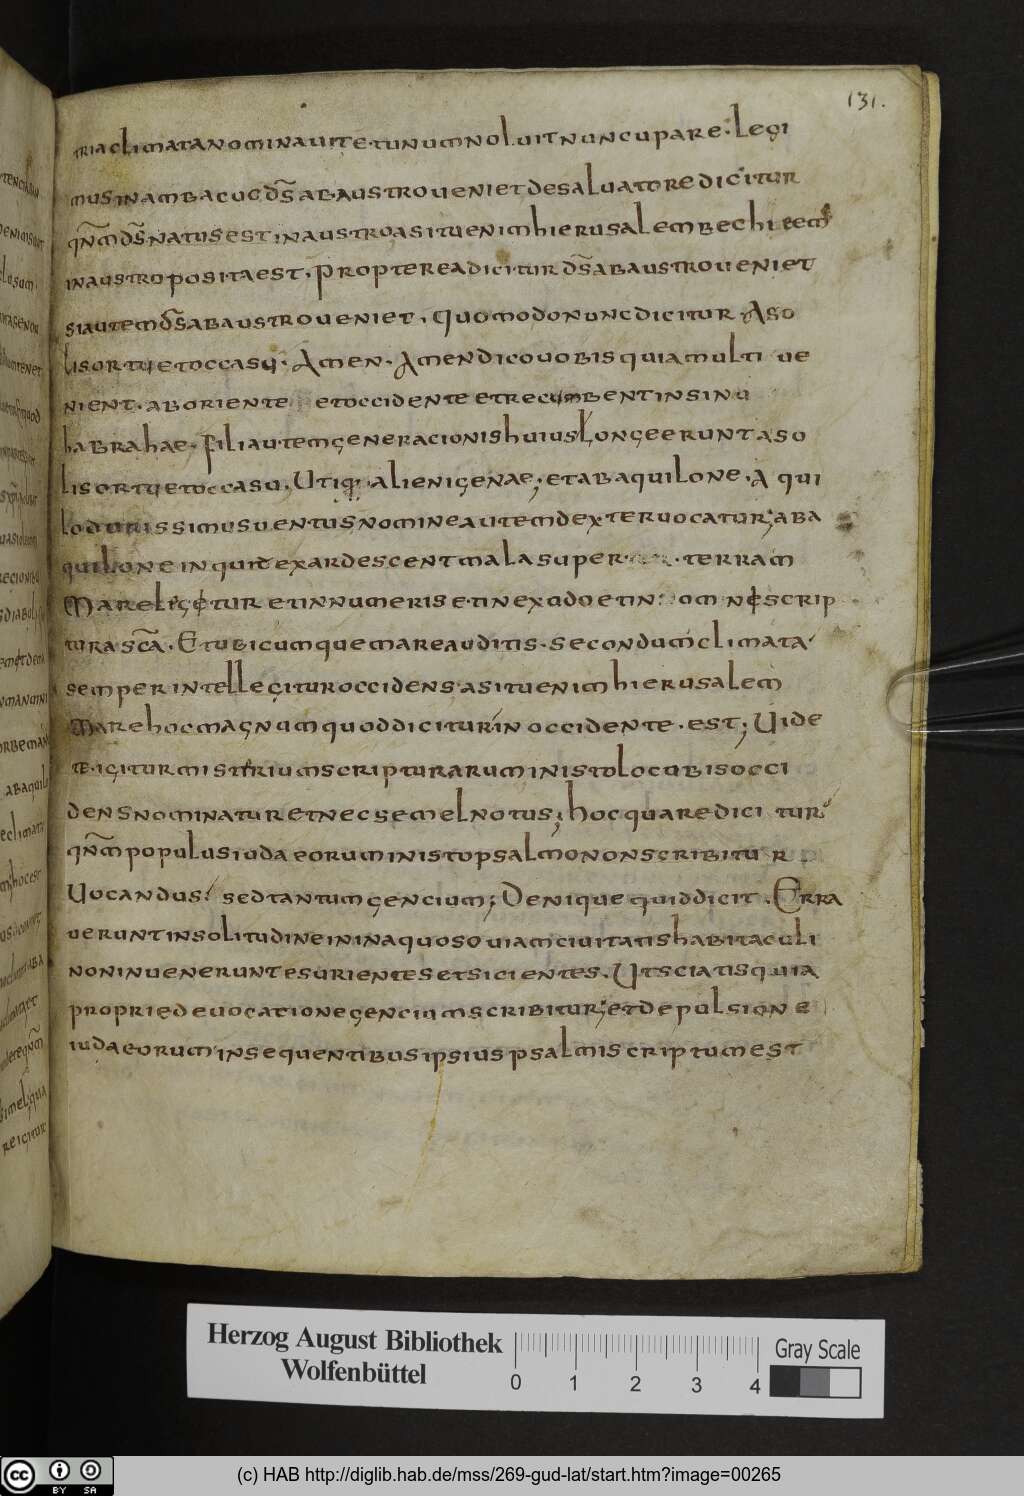 131.
tria climata nominauit et unum noluit nuncupare. Legi
mus in ambacuc ds̄ ab austro ueniet de saluatore dicitur
qn̄m ds̄ natus est in austro asitu enim hierusalem bechleem
in austro posita est, propterea dicitur ds̄ ab austro ueniet
si autem ds̄ ab austro ueniet, quomodo nunc dicitur Aso
lis ortu et occasu. Amen. Amen dico uobis quia multi ue
nient. ab oriente et occidente et recumbent in sinu
habrahae. fili autem generacionis huius longe erunt aso
lis ortu et occasu, Utiq; alienigenae; et ab aquilone, A qui
lo durissimus uentus nomine autem dexter uocatur; aba
quilone inquid exardescent mala super terram
Mare legetur et in numeris et in exodo et in om nescrip
tura sc̄a. Et ubicumque mare auditis. secondum climata
semper intellegitur occidens asitu enim hierusalem
mare hoc magnum quod dicitur in occidente. est; Uide
te. igitur misterium scripturarum in isto loco ubis occi
dens nominatur et nec semel notus; hoc quare dici tur
qn̄m populus iudaeorum in isto psalmo non scribitu r
Uocandus! sed tantum gencium; Denique quid dicit. Erra
uerunt insolitudine in inaquoso uiam ciuitatis habitaculi
non inuenerunt esurientes et sicientes. Ut sciatis quia
proprie deuocatione gencium scribitur; et depulsione
iudaeorum in sequentibus ipsius psalmi scriptum est
Herzog August Bibliothek
Wolfenbüttel
0 1 2 3 4
Gray Scale
cc BY SA
(c) HAB http://diglib.hab.de/mss/269-gud-lat/start.htm?image=00265